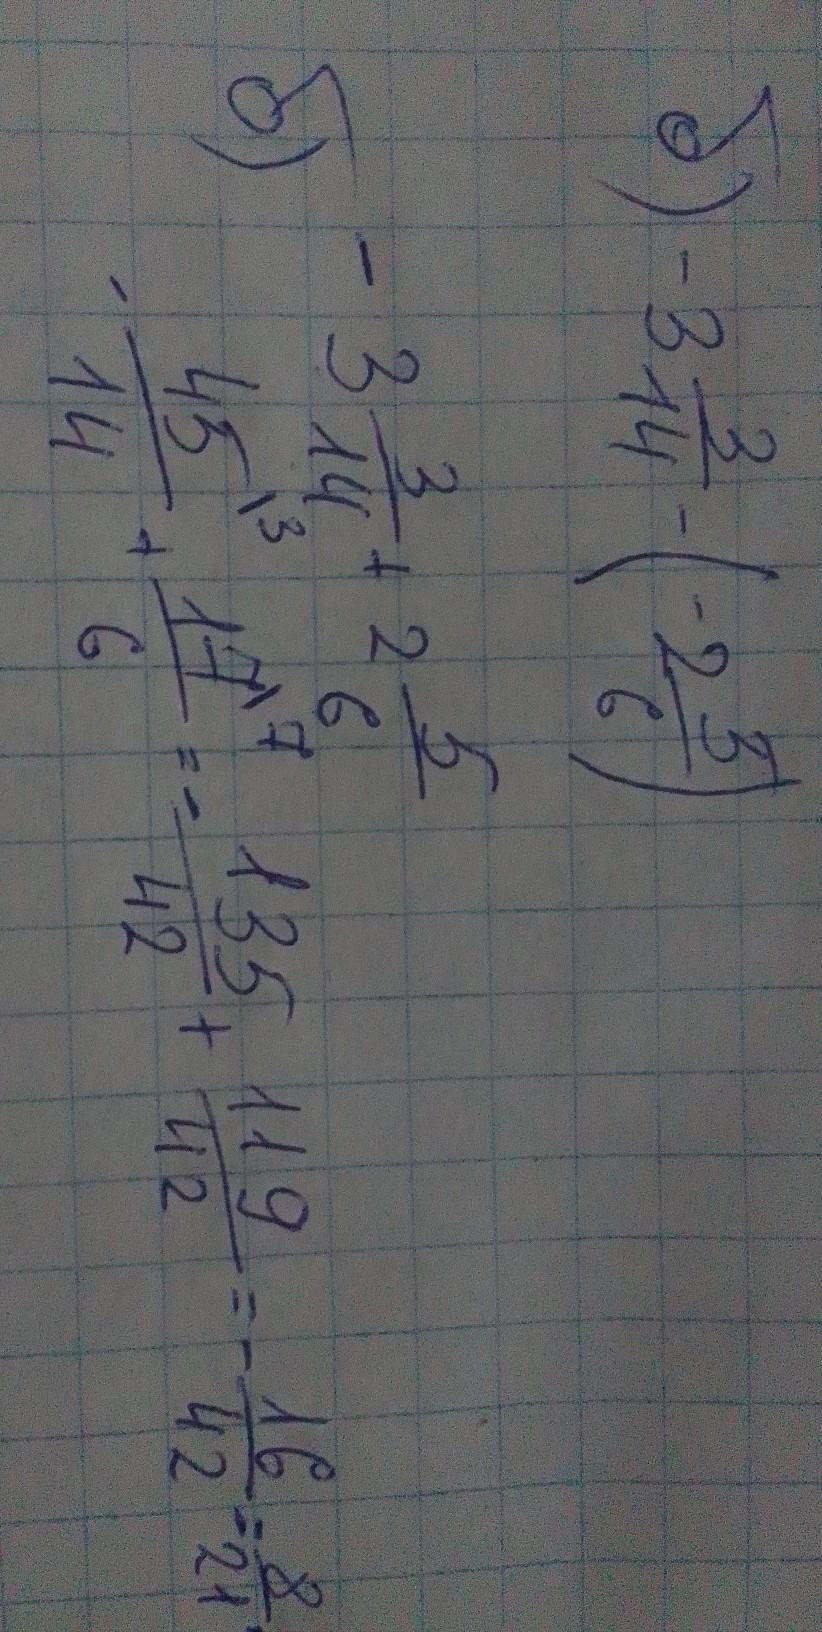 б) -3 3/14 - (-2 5/6)
б) -3 3/14 + 2 5/6
-45/14 \3 + 17/6 \7 = -135/42 + 119/42 = -16/42 = 8/21